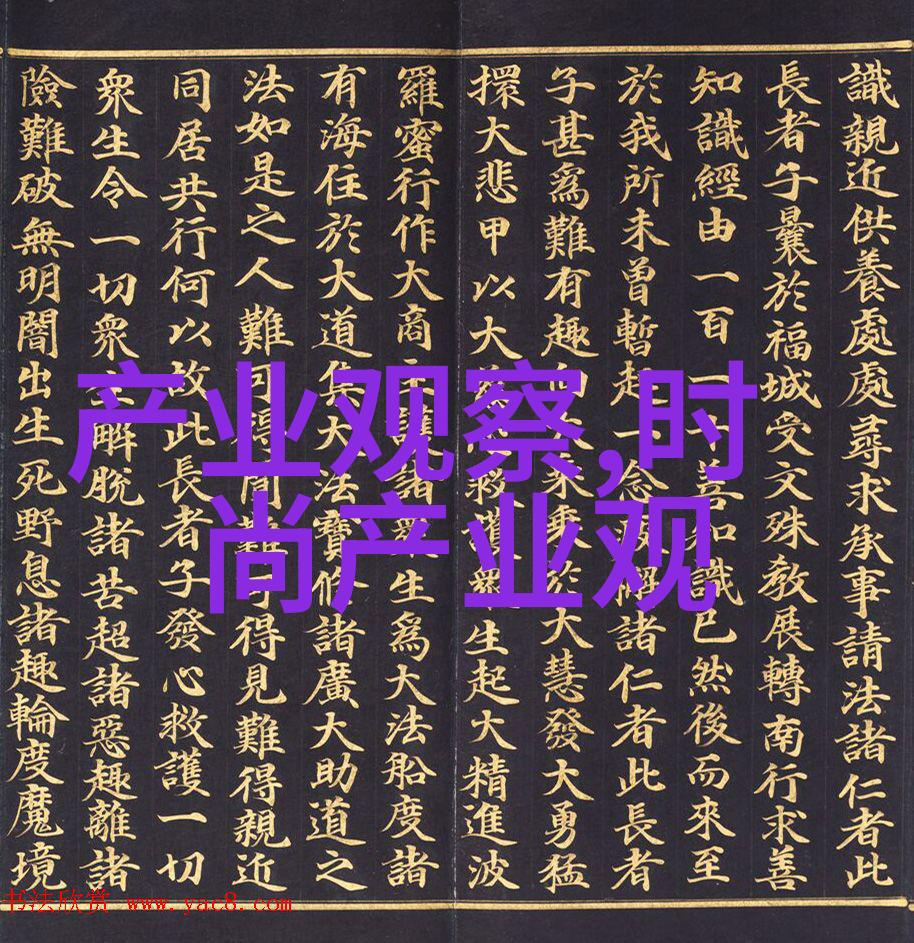 識親近供養處處尋求承事請法諸仁者此
長者子曩於福城受文殊教展轉南行求善
知識經由一百一十善知識已然後而來至
於我所未曾暫起一念疲懈諸仁者此長者
子甚爲難有趣向大乘乘於大慧發大勇猛
擐大悲甲以大慈心救護衆生起大精進波
羅蜜行作大商主護諸衆生爲大法船度諸
有海住於大道集大法寶修諸廣大助道之
法如是之人難可得聞難可得見難得親近
同居共行何以故此長者子發心救護一切
衆生令一切衆生解脫諸苦超諸惡趣離諸
險難破無明闇出生死野息諸趣輪度魔境
产业观察,时
尚产业观
书法欣赏 www.yac8.com